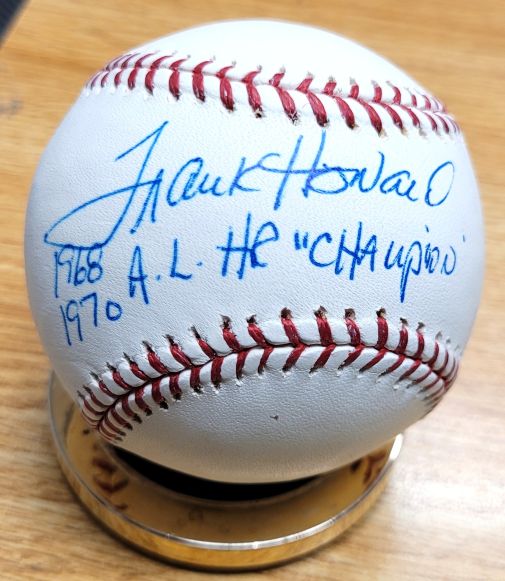 Frank Howard
1968 A.L. HR "CHAMPION"
1970